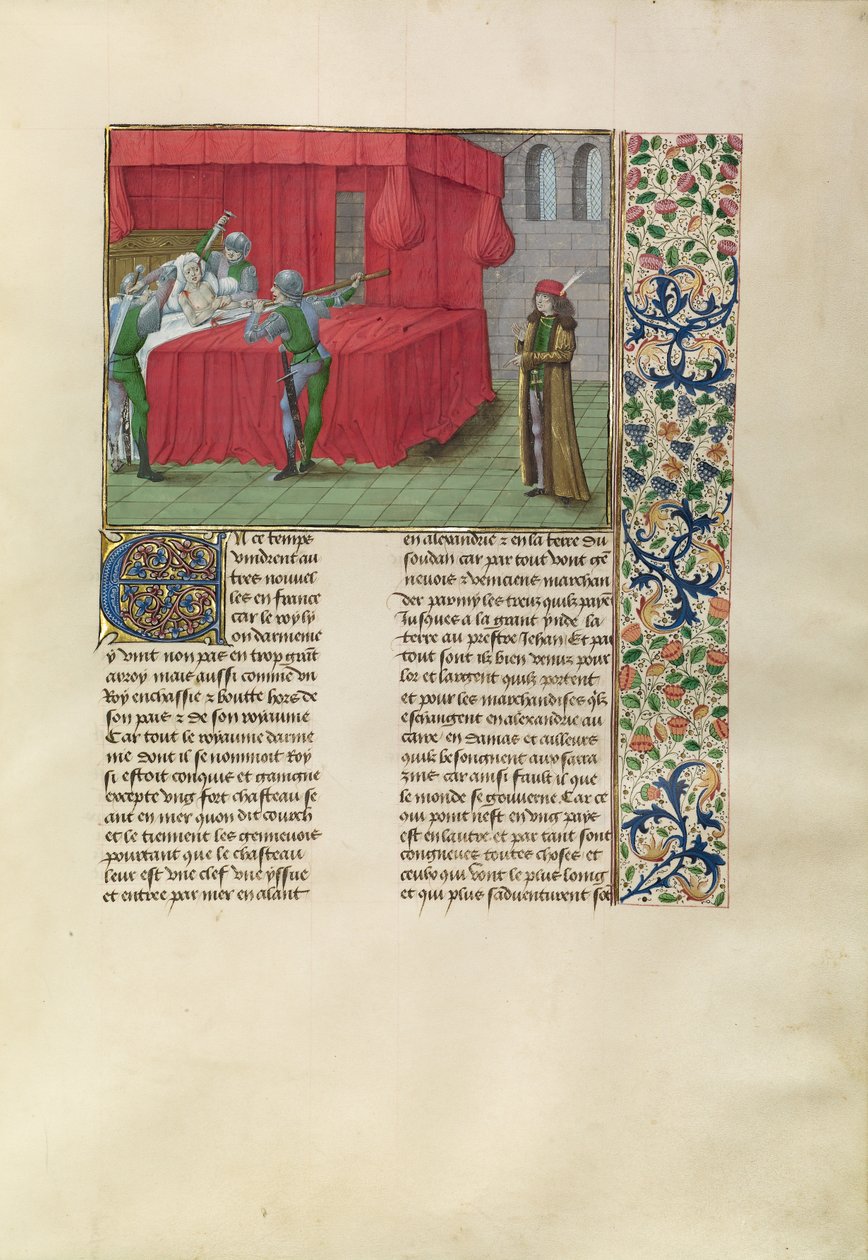 En ce temps
vindrent au
tres nouuel
les en france
car le roy ly
on darmenie
y vint non pas en trop grant
arroy mais aussi comme vn
Roy enchassie & boutte hors de
son pais & de son royaume
Car tout le royaume darme
nie dont il se nommoit Roy
si estoit conquis et gaingne
excepte vng fort chasteau se
ant en mer quon dit courch
et le tiennent les gennevois
pourtant que le chasteau
leur est vne clef vne yssue
et entree par mer en alant
en alexandrie & en la terre du
soudan car par tout vont gē
nevois & veniciens marchan
der parmy les treuz quilz paient
Jusques a la grant ynde la
terre au prestre Jehan Et par
tout sont ilz bien venuz pour
lor et largent quilz portent
et pour les marchandises qlz
eschangent en alexandrie au
caire en damas et ailleurs
quilz besongnent aux sarra
zins car ainsi fault il que
le monde se gouverne Car ce
qui point nest en vng pays
est en lautre et par tant sont
congneues toutes choses et
ceulx qui vont le plus loing
et qui plus sadventurent sot